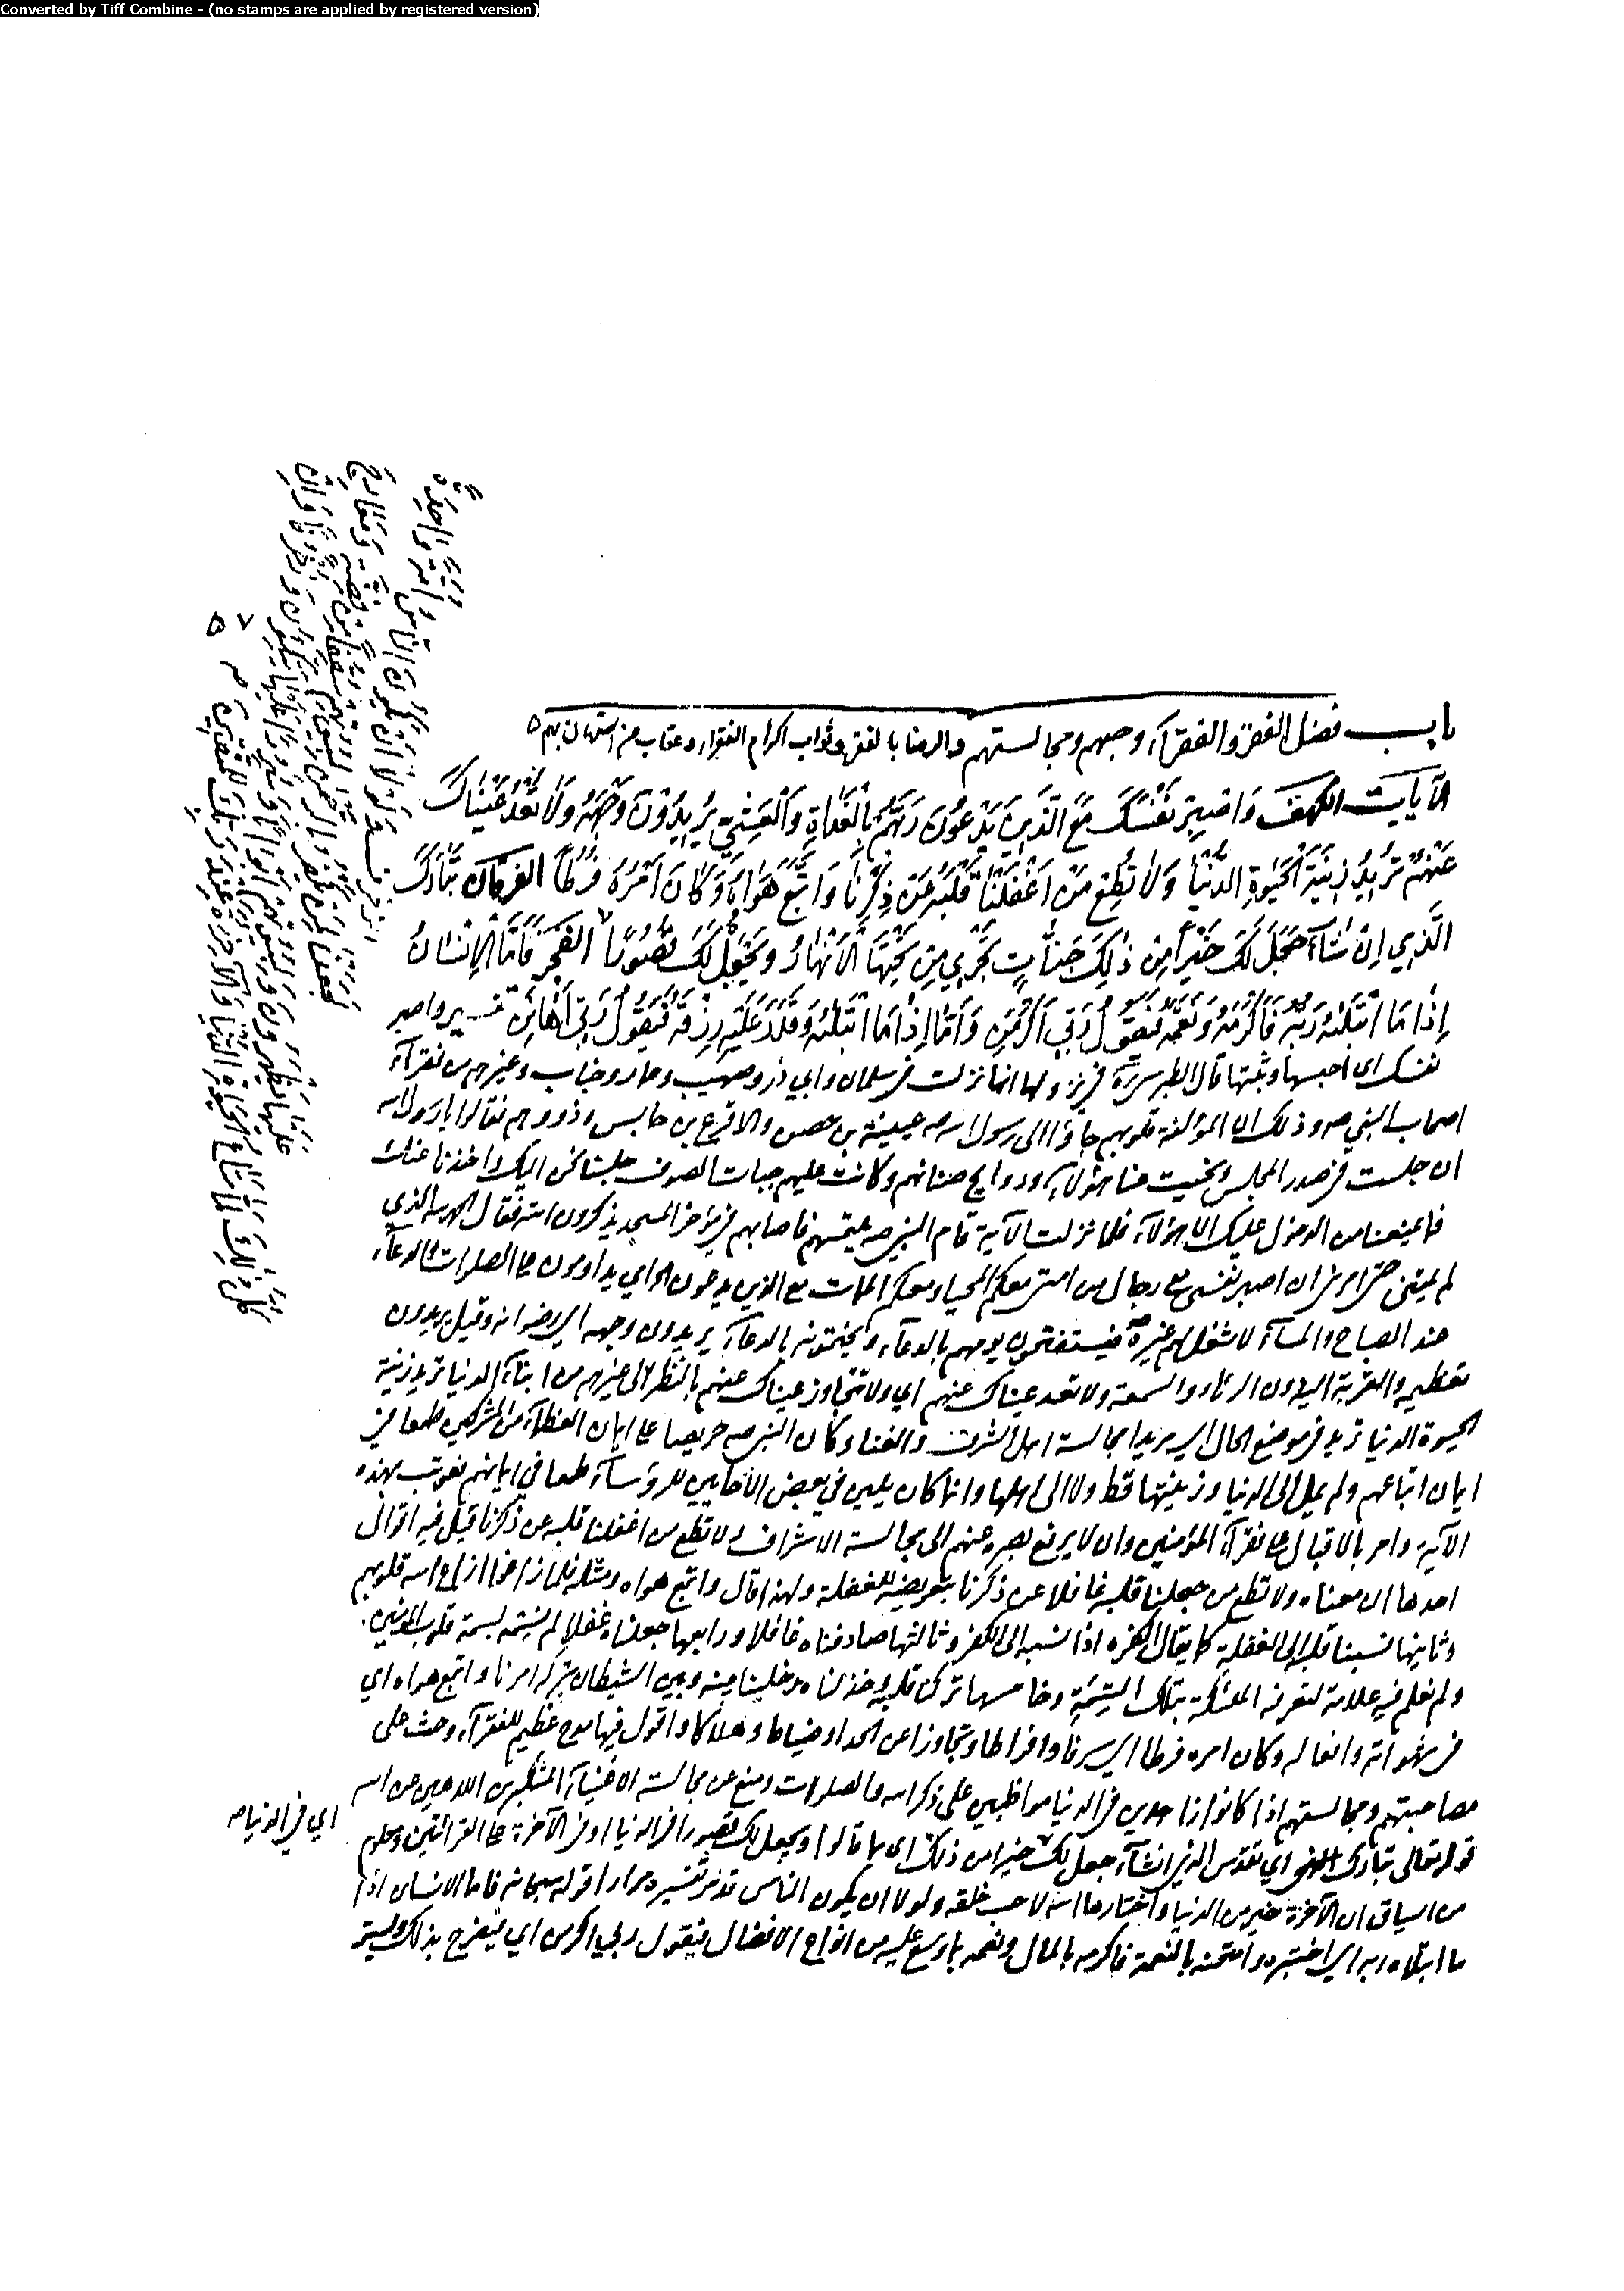 Converted by Tiff Combine - (no stamps are applied by registered version)
باب فضل الفقر والفقرآء وحبهم ومجالستهم والرضا بالفقر وثواب اكرام الفقراء وعقاب من استهان بهم
الآيات الكهف وَاصْبِرْ نَفْسَكَ مَعَ الَّذينَ يَدْعُونَ رَبَّهُمْ بِالْغَداةِ وَالْعَشِيِّ يُريدُونَ وَجْهَهُ وَلا تَعْدُ عَيْناكَ
عَنْهُمْ تُريدُ زينَةَ الْحَيوةِ الدُّنْيا وَلا تُطِعْ مَنْ اَغْفَلْنا قَلْبَهُ عَنْ ذِكْرِنا وَاتَّبَعَ هَواهُ وَكانَ اَمْرُهُ فُرُطاً الفرقان تَبارَكَ
الَّذي اِنْ شآءَ جَعَلَ لَكَ خَيْراً مِنْ ذلِكَ جَنّاتٍ تَجْري مِنْ تَحْتِهَا الْاَنْهارُ وَيَجْعَلْ لَكَ قُصُوراً الفجر فَاَمَّا الْاِنْسانُ
اِذا مَا ابْتَلهُ رَبُّهُ فَاَكْرَمَهُ وَنَعَّمَهُ فَيَقُولُ رَبّي اَكْرَمَنِ وَاَمّا اِذا مَا ابْتَلهُ فَقَدَرَ عَلَيْهِ رِزْقَهُ فَيَقُولُ رَبّي اَهانَنِ تفسير واصبر
نفسك اي احبسها وثبتها قال الطبرسي ره في نزولها انها نزلت في سلمان وابي ذر وصهيب وعمار وخباب وغيرهم من فقرآء
اصحاب النبي ص وذلك ان المؤلفة قلوبهم جاؤا الى رسول الله ص عيينة بن حصن والاقرع بن حابس وذووهم فقالوا يا رسول الله
ان جلست في صدر المجلس ونحيت عنا هؤلآء وروايح صنانهم وكانت عليهم جبات الصوف جلسنا نحن اليك واخذنا عنك
فما يمنعنا من الدخول عليك الا هؤلآء فلما نزلت الآية قام النبي ص يلتمسهم فاصابهم في مؤخر المسجد يذكرون الله فقال الحمد لله الذي
لم يمتني حتى امرني ان اصبر نفسي مع رجال من امتي معكم المحيا ومعكم الممات مع الذين يدعون الخ اي يداومون على الصلوات والدعآء
عند الصباح والمسآء لا شغل لهم غيره فيستفتحون يومهم بالدعآء ويختمونه بالدعآء يريدون وجهه اي رضوانه وقيل يريدون
تعظيمه والقربة اليه دون الرئاء والسمعة ولا تعد عيناك عنهم اي ولا تتجاوز عيناك عنهم بالنظر الى غيرهم من ابنآء الدنيا تريد زينة
الحيوة الدنيا تريد في موضع الحال اي مريدا مجالسة اهل الشرف والغنا وكان النبي ص حريصا على ايمان العظمآء من المشركين طمعا في
ايمان اتباعهم ولم يمل الى الدنيا وزينتها قط ولا الى اهلها وانما كان يلين في بعض الأحايين للرؤسآء طمعا في ايمانهم فعوتب بهذه
الآية وامر بالاقبال على فقرآء المؤمنين وان لا يرفع بصره عنهم الى مجالسة الاشراف ولا تطع من اغفلنا قلبه عن ذكرنا قيل فيه اقوال
احدها ان معناه ولا تطع من جعلنا قلبه غافلا عن ذكرنا بتعريضه للغفلة ولهذا قال واتبع هواه ومثله فلما زاغوا ازاغ الله قلوبهم
وثانيها نسبنا قلبه الى الغفلة كما يقال اكفره اذا نسبه الى الكفر وثالثها صادفناه غافلا ورابعها جعلناه غفلا لم نسمه بسمة قلوب المؤمنين
ولم نعلم فيه علامة لتعرفه الملئكة بتلك السِّمَةِ وخامسها تركنا قلبه وخذلناه وخلينا بينه وبين الشيطان بتركه امرنا واتبع هواه اي
في شهواته وافعاله وكان امره فرطا اي سرفا وافراطا وتجاوزا عن الحد او ضياعا وهلاكا واقول فيها مدح عظيم للفقرآء وحث على
مصاحبتهم ومجالستهم اذا كانوا زاهدين في الدنيا مواظبين على ذكر الله والصلوات ومنع عن مجالسة الاغنيآء المتكبرين اللاهين عن الله
قوله تعالى تبارك الذي اي تقدس الذي ان شآء جعل لك خيرا من ذلك اي مما قالوا ويجعل لك قصورا في الدنيا او في الآخرة على القرائتين ومعلوم
من السياق ان الآخرة خير من الدنيا واختارها الله لاحب خلقه ولولا ان يكون الناس قد مر تفسيره مرارا قوله سبحانه فاما الانسان اذا
ما ابتلاه ربه اي اختبره وامتحنه بالنعمة فاكرمه بالمال ونعمه بما وسع عليه من انواع الافضال فيقول ربي اكرمن اي فيفرح بذلك ويسر
اي في الدنيا ص
الزخرف وَلَوْلا اَنْ يَكُونَ النّاسُ اُمَّةً واحِدَةً
لَجَعَلْنا لِمَنْ يَكْفُرُ بِالرَّحْمنِ لِبُيُوتِهِمْ سُقُفاً مِنْ فِضَّةٍ وَمَعارِجَ
عَلَيْها يَظْهَرُونَ وَلِبُيُوتِهِمْ اَبْواباً وَسُرُراً عَلَيْها يَتَّكِئُونَ وَزُخْرُفاً وَاِنْ
كُلُّ ذلِكَ لَمّا مَتاعُ الْحَيوةِ الدُّنْيا وَالْآخِرَةُ عِنْدَ رَبِّكَ لِلْمُتَّقينَ